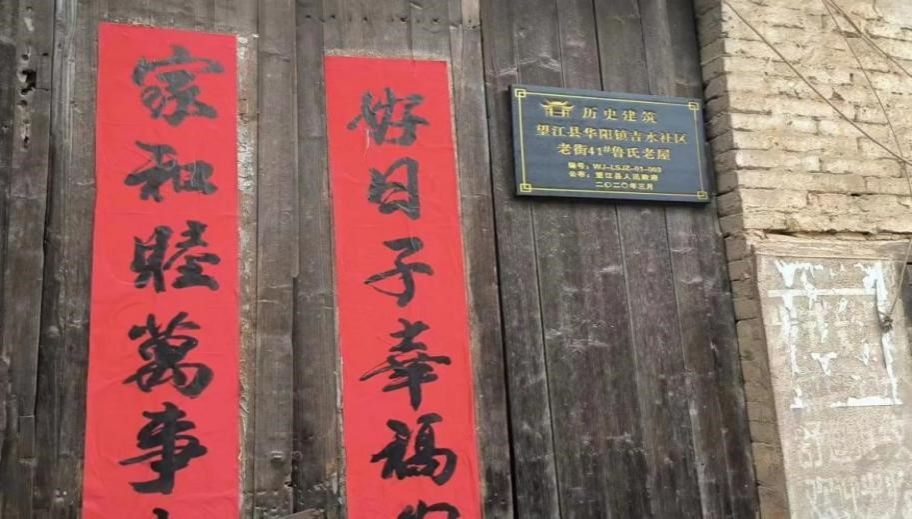 好日子幸福
家和睦萬事
历史建筑
望江县华阳镇吉水社区
老街41#鲁氏老屋
编号：WJ-LSJZ-01-003
公布：望江县人民政府
二〇二〇年三月